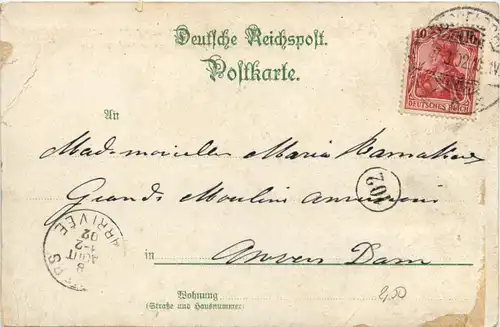 Deutsche Reichspost.
Postkarte.
10
DEUTSCHES REICH
An
Mademoiselle Maria
Grands Moulins
702
ARRIVÉE
8
AOUT
1-2
02
in Anvers Dam
Wohnung
(Straße und Hausnummer)
2,50